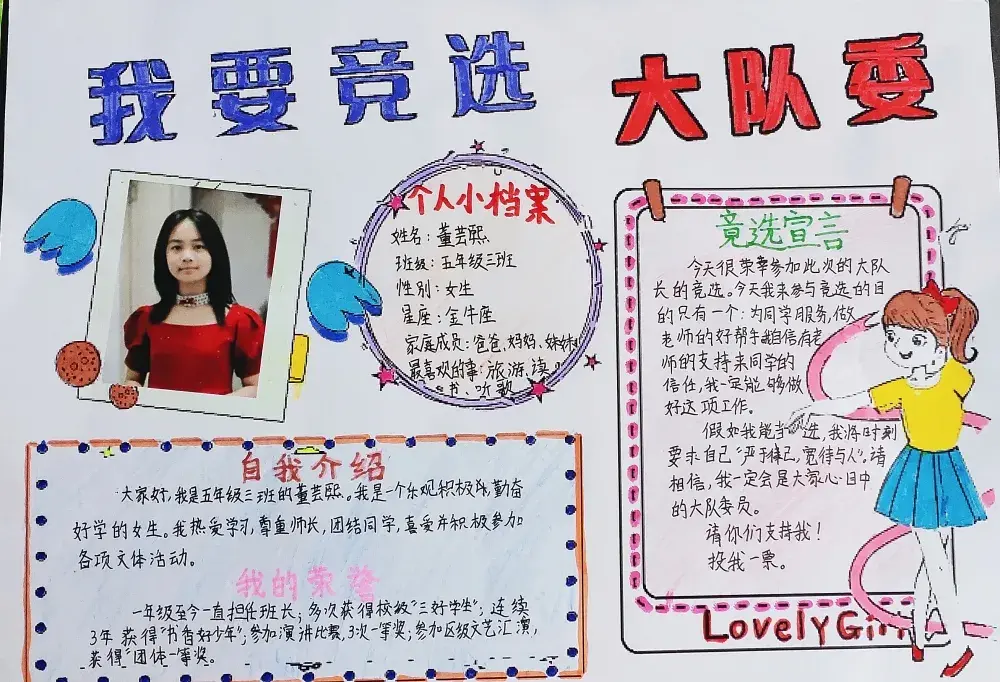 我要竞选 大队委
个人小档案
姓名：董芸熙
班级：五年级三班
性别：女生
星座：金牛座
家庭成员：爸爸、妈妈、妹妹
最喜欢的事：旅游、读
书、听歌
自我介绍
大家好，我是五年级三班的董芸熙。我是一个乐观积极向，勤奋
好学的女生。我热爱学习，尊重师长，团结同学，喜爱并积极参加
各项文体活动。
我的荣誉
一年级至今一直担任班长；多次获得校级“三好学生”；连续
3年获得“书香好少年”；参加演讲比赛，3次一等奖；参加区级文艺汇演，
获得“团体一等奖。
竞选宣言
今天很荣幸参加此次的大队
长的竞选。今天我来参与竞选的目
的只有一个：为同学服务，做
老师的好帮手我自信有老
师的支持来同学的
信任，我一定能够做
好这项工作。
假如我能当选，我将时刻
要求自己“严于律己，宽待与人”。请
相信，我一定会是大家心目中
的大队委员。
请你们支持我！
投我一票。
Lovely Girl